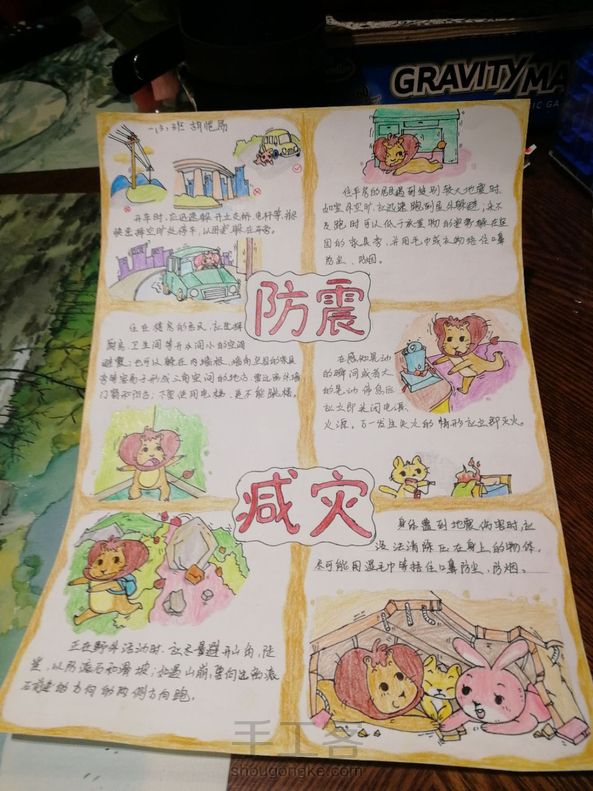 GRAVITY MA
IC GA
一(3)班 胡
开车时,应迅速躲开立交桥、电杆等,很
快选择空旷处停车,
住在平房的居民遇到级别较大地震时,
如室外空旷,应迅速跑到屋外躲避,
及跑时可
固的家具旁,并用毛巾或衣物捂住口鼻
防尘、防烟。
防震
住在楼房的居民,应选择
厨房、卫生间等开间小的空间
避震;也可以躲在内墙根、墙角、坚固的家具
旁等容易于形成三角空间的地方;要远离外墙、
门窗和阳台;不要使用电梯,更不能跳楼。
在感知晃动
的瞬间或者大
的晃动停息后
应立即关闭电源、
火源,万一发生失火的情形应立即灭火。
减灾
身体遭到地震伤害时,应
设法清除压在身上的物体,
尽可能用湿毛巾等捂住口鼻防尘、防烟。
正在野外活动时,应尽量避开山岗、陡
崖,以防滚石和滑坡;如遇山崩,要向远离滚
石前进的方向的两侧方向跑。
手工客
shougongke.com